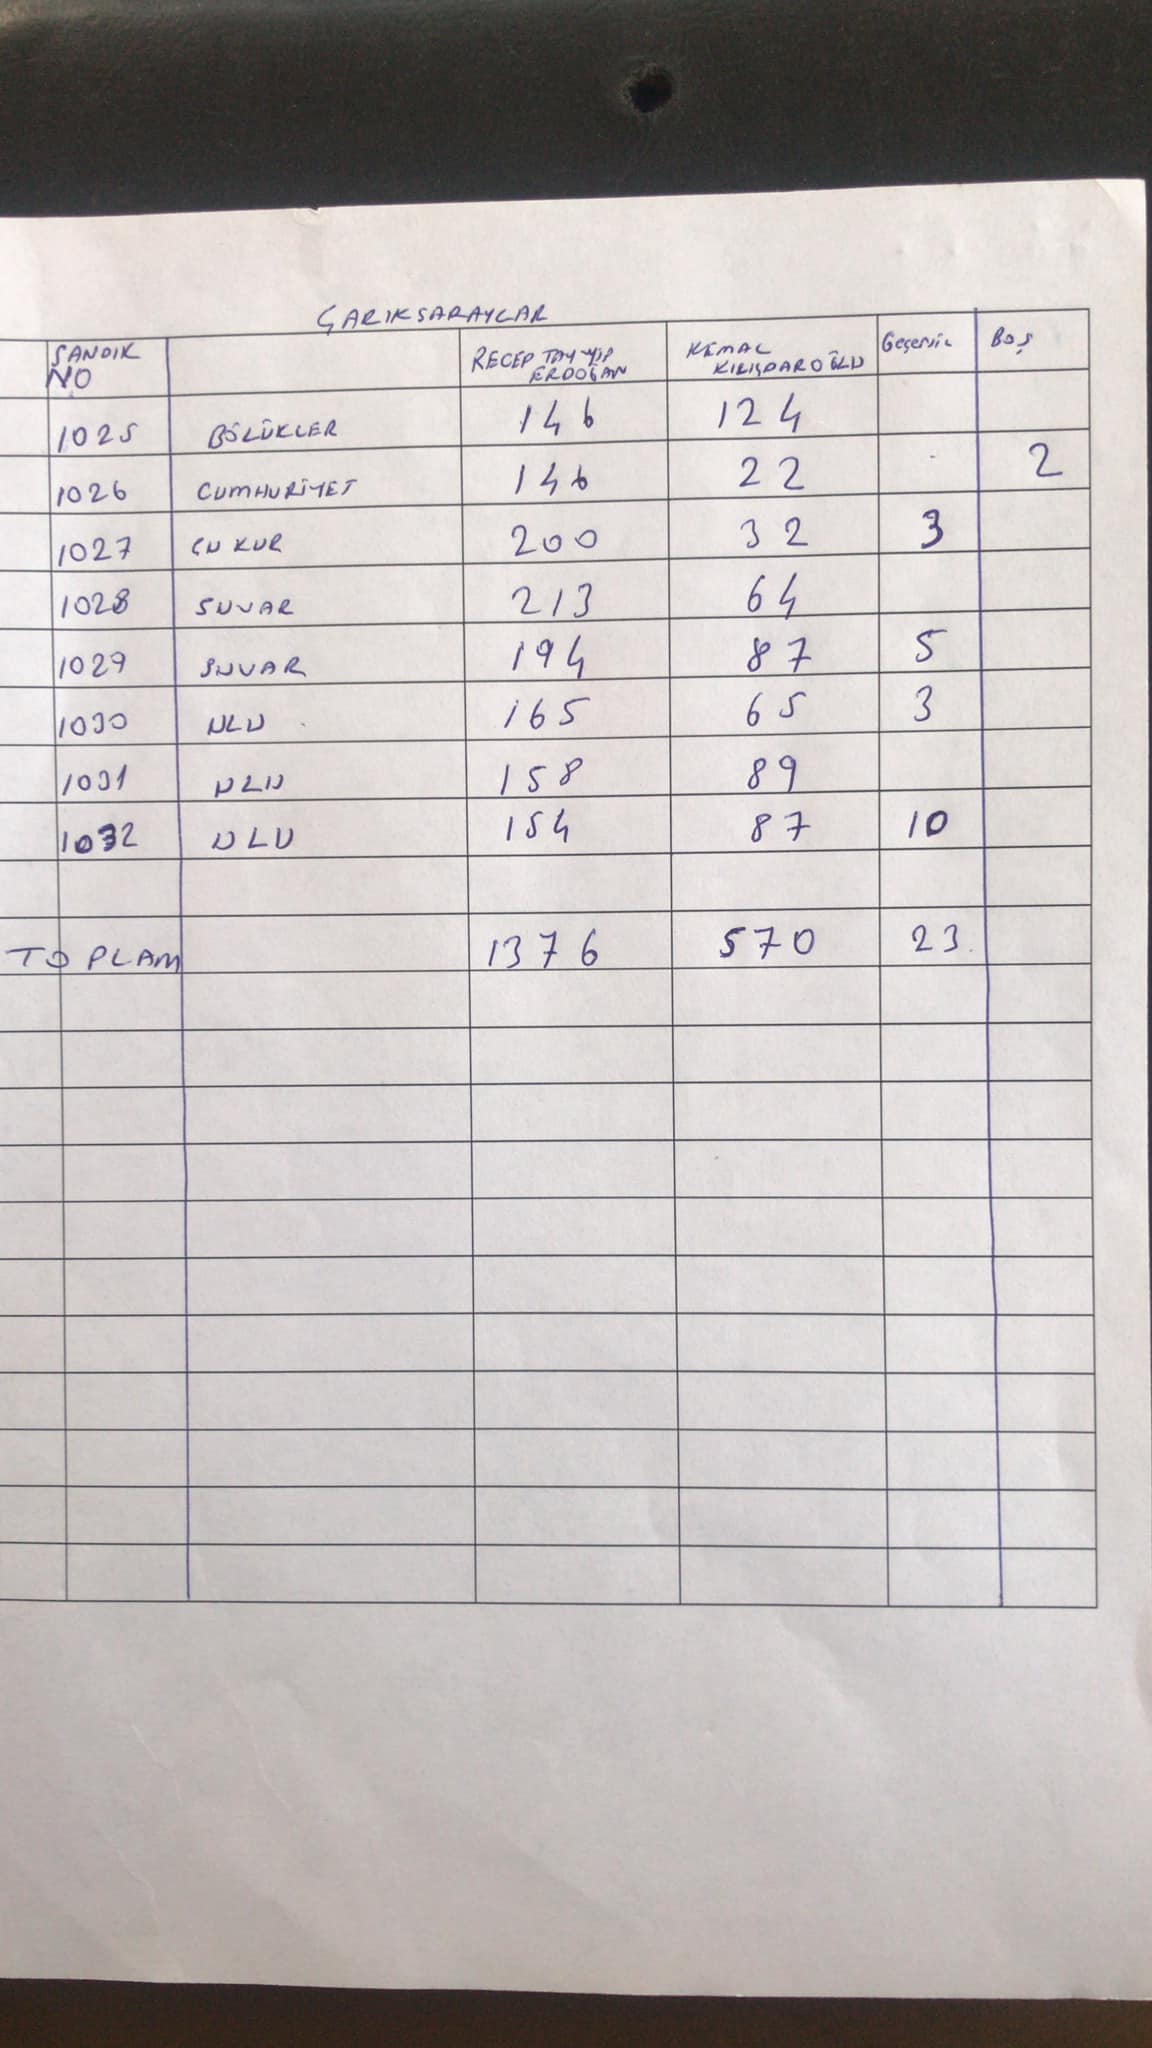 ÇARIKSARAYLAR
SANDIK NO RECEP TAYYİP ERDOĞAN KEMAL KILIÇDAROĞLU Geçersiz Boş
1025 BÖLÜKLER 146 124
1026 CUMHURİYET 146 22 2
1027 ÇUKUR 200 32 3
1028 SUVAR 213 64
1029 SUVAR 194 87 5
1030 ULU 165 65 3
1031 ULU 158 89
1032 ULU 154 87 10
TOPLAM 1376 570 23